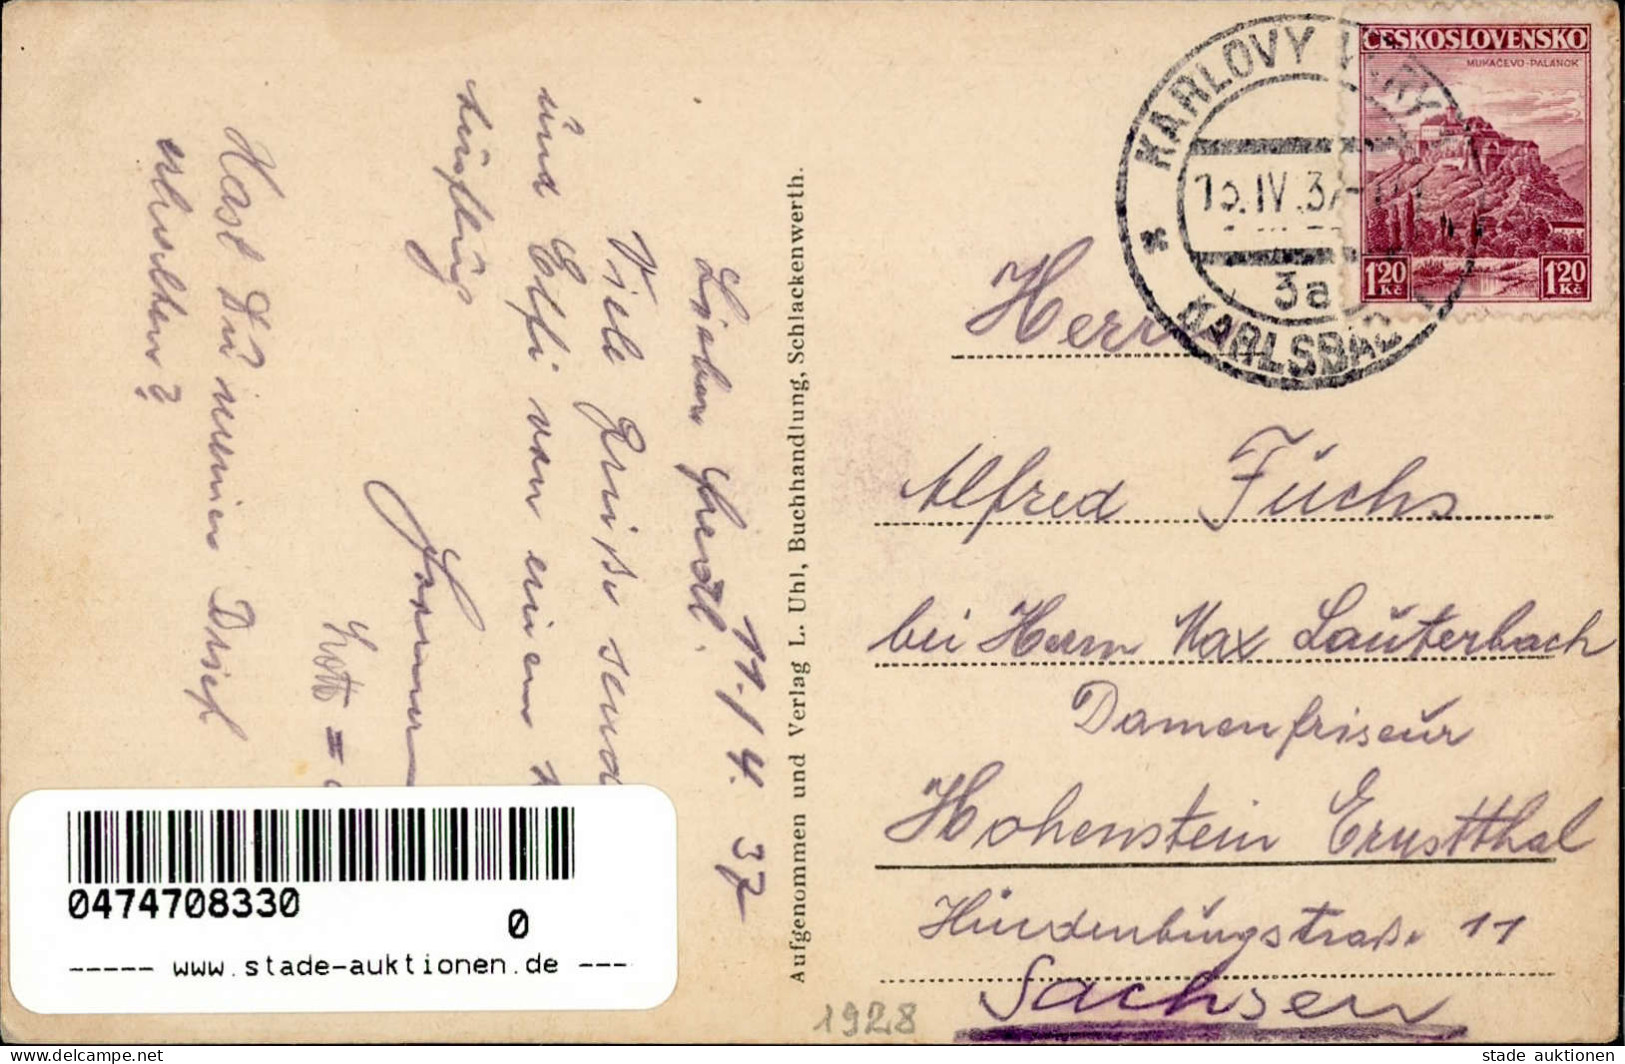 11./4. 37
Lieber Fredl.
Viele Grüße send
und Elfi von einem
Hast Du meinen Brief
erhalten?
Aufgenommen und Verlag L. Uhl, Buchhandlung, Schlackenwerth.
KARLOVY VARY
IV.37
3a
KARLSBAD
ČESKOSLOVENSKO
MUKAČEVO-PALANOK
1.20 Kč
1.20 Kč
Herrn
Alfred Fuchs
bei Herrn Max Lauterbach
Damenfriseur
Hohenstein Ernstthal
Hindenburgstraße 11
Sachsen
1928
0474708330
0
----- www.stade-auktionen.de ---
stade auktionen